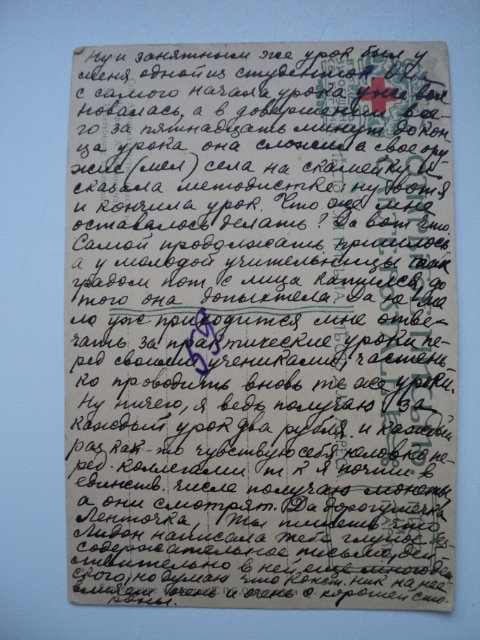 Ну и занятным же урок был у
меня одной из студенток
с самого начала урока уже вол
новалась, а в довершении все
го за пятнадцать минут до кон
ца урока она сложила свое ору
жие (мел) села на скамейку и
сказала методистке: ну вот я
и кончила урок. Что же мне
оставалось делать? Да вот что.
Самой продолжать пришлось
а у молодой учительницы так
градом пот с лица катился, до
того она допыхтела. Да
ло уже приходится мне отве-
чать за практические уроки пе-
ред своими учениками, частень
ко проводить вновь те же уроки.
Ну ничего, я ведь получаю за
каждый урок два рубля. и каждый
раз как-то чувствую себя неловко пе-
ред коллегами т к я почти в
единств. числе получаю монеты
а они смотрят. Да дорогушечка
Леночка Ты пишешь что
Лидон написала тебе глупое бес-
содержательное письмо, дей
ствительно в ней еще много дет
ского, но думаю что Конст. ник на нее
очень и очень с хорошей сто-
роны.
559